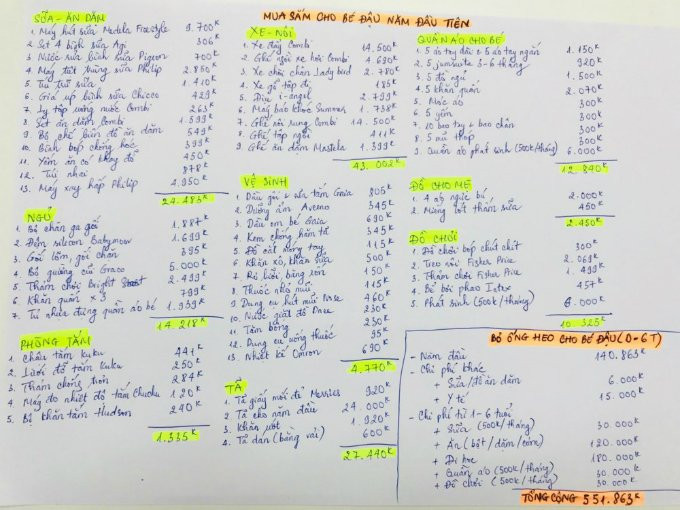 MUA SẮM CHO BÉ ĐẬU NĂM ĐẦU TIÊN
SỮA - ĂN DẶM
1. Máy hút sữa Medela Freestyle 9.700K
2. Set 4 bình sữa Agi 306K
3. Nước rửa bình sữa Pigeon 700K
4. Máy tiệt trùng sữa Philip 2.850K
5. Túi trữ sữa 1.410K
6. Giá úp bình sữa Chicco 429K
7. Ly tập uống nước Combi 263K
8. Set ăn dặm Combi 1.599K
9. Bộ chế biến đồ ăn dặm 549K
10. Bình bóp chống hóc 399K
11. Yếm ăn có khay đổ 450K
12. Túi nhai 878K
13. Máy xay hấp Philip 4.950K
24.483K
NGỦ
1. Bộ chăn ga gối 1.887K
2. Đệm silicon Babymoov 1.699K
3. Gối lõm, gối chặn 395K
4. Bộ giường cũi Graco 5.000K
5. Thảm chơi Bright Start 2.499K
6. Khăn quấn x 3 799K
7. Tủ nhựa đựng quần áo bé 1.939K
14.218K
PHÒNG TẮM
1. Chậu tắm kuku 441K
2. Lưới đỡ tắm kuku 250K
3. Thảm chống trơn 284K
4. Máy đo nhiệt độ tắm Chuchu 120K
5. Bộ khăn tắm Hudson 240K
1.335K
XE - NÔI
1. Xe đẩy Combi 14.500K
2. Ghế ngồi xe hơi Combi 4.690K
3. Xe chòi chân Ladybird 2.780K
4. Xe gỗ tập đi 185K
5. Địu i-angel 2.799K
6. Máy báo khóc Summer 1.738K
7. Ghế nôi rung Combi 14.500K
8. Ghế tập ngồi 411K
9. Ghế ăn dặm Mastela 1.399K
43.002K
VỆ SINH
1. Dầu gội + sữa tắm Gaia 805K
2. Dưỡng ẩm Aveeno 345K
3. Dầu em bé Gaia 690K
4. Kem chống hăm tã 345K
5. Đồ cắt móng tay 115K
6. Khăn xô, khăn sữa 500K
7. Rơ lưỡi bằng xỉn 150K
8. Thuốc nhỏ mũi 115K
9. Dụng cụ hút mũi Nose 460K
10. Nước giặt đồ Dnee 230K
11. Tăm bông 230K
12. Dụng cụ uống thuốc 95K
13. Nhiệt kế Omron 690K
4.770K
TÃ
1. Tã giấy mới đẻ Merries 920K
2. Tã cho năm đầu 24.000K
3. Khăn ướt 1.920K
4. Tã dán (bằng vải) 600K
27.440K
QUẦN ÁO CHO BÉ
1. 5 áo tay dài + 5 áo tay ngắn 1.150K
2. 5 jumsuits 3-6 tháng 920K
3. 5 đồ ngủ 1.500K
4. 5 khăn quấn 2.070K
5. Móc áo 300K
6. 5 yếm 300K
7. 10 bao tay + bao chân 300K
8. 5 mũ thóp 300K
9. Quần áo phát sinh (500k/tháng) 6.000K
12.840K
ĐỒ CHO MẸ
1. 4 áo ngực bú 2.000K
2. Miếng lót thấm sữa 450K
2.450K
ĐỒ CHƠI
1. Đồ chơi bóp chút chít 300K
2. Treo nôi Fisher Price 2.069K
3. Thảm chơi Fisher Price 1.499K
4. Bể bơi phao Intex 457K
5. Phát sinh (500k/tháng) 6.000K
10.325K
BỎ ỐNG HEO CHO BÉ ĐẬU (0-6T)
- Năm đầu 140.863K
- Chi phí khác
+ Sữa/đồ ăn dặm 6.000K
+ Y tế 15.000K
- Chi phí từ 1-6 tuổi
+ Sữa (500k/tháng) 30.000K
+ Ăn (bột/dặm/cơm) 120.000K
+ Đi học 180.000K
+ Quần áo (500k/tháng) 30.000K
+ Đồ chơi (500k/tháng) 30.000K
TỔNG CỘNG 551.863K